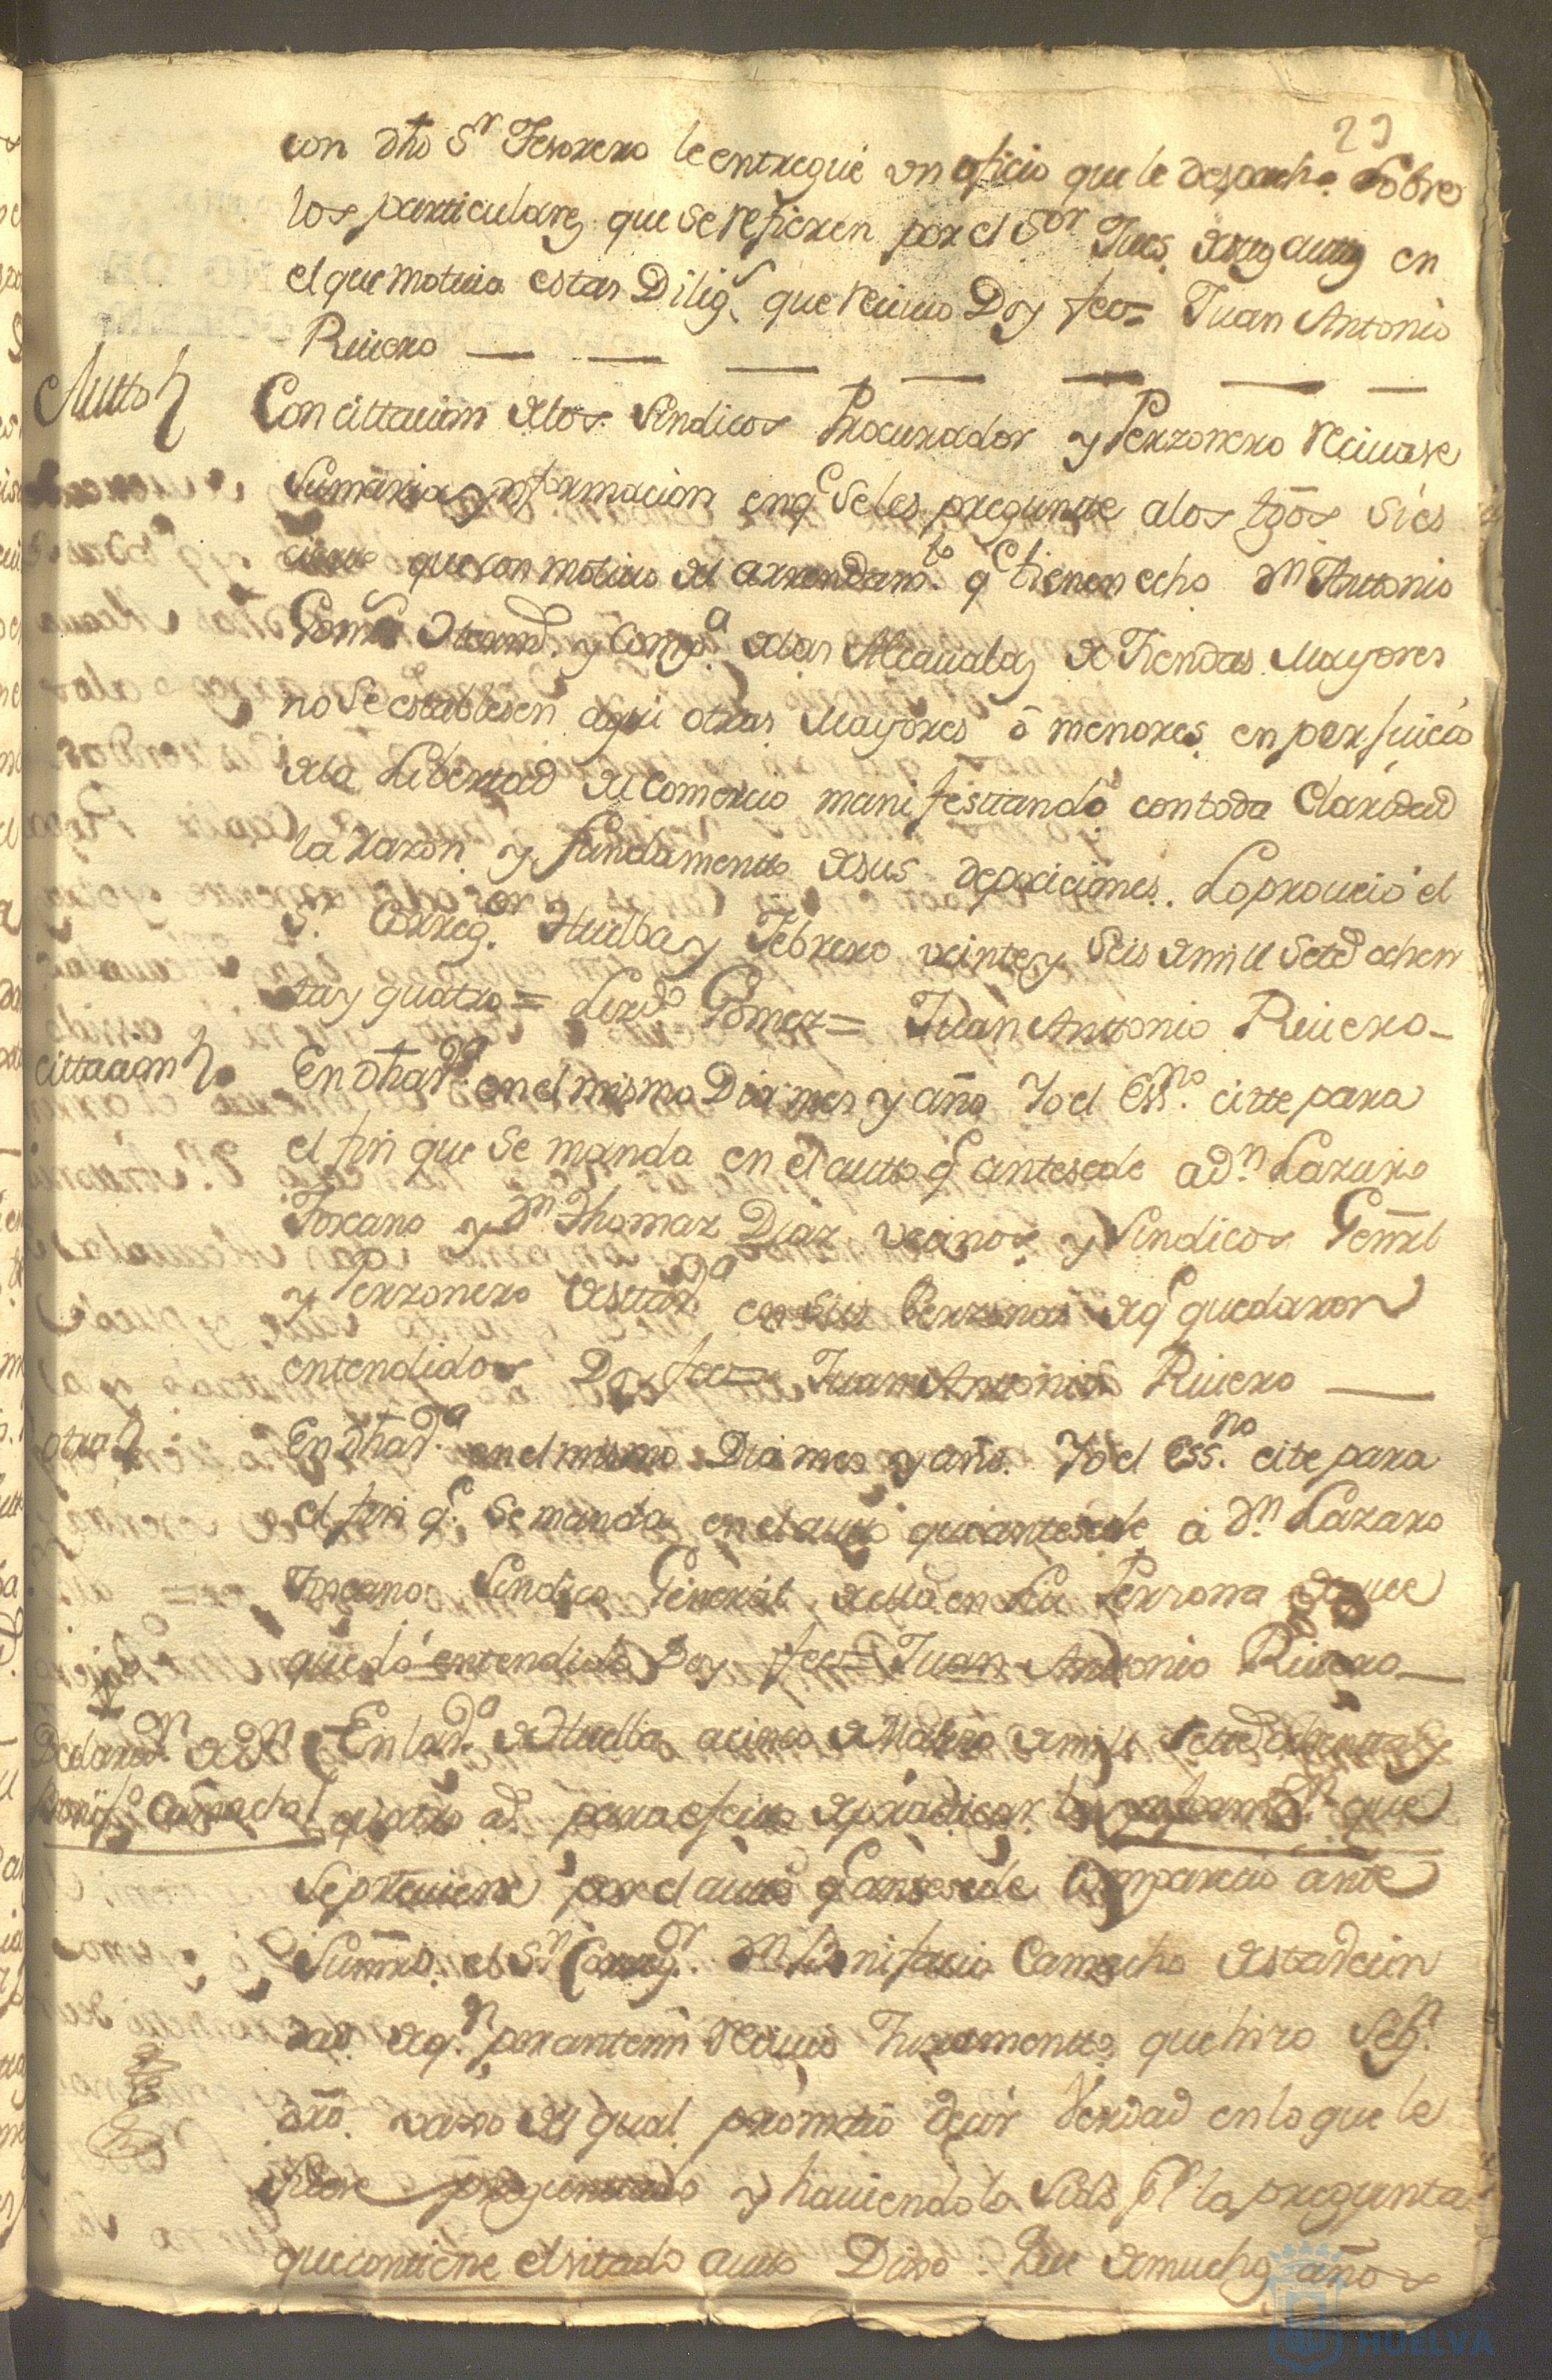 23
con dho Sr Tesorero le entregué un oficio que le despachó sobre
los particulares que se refieren por el Sor Jues destos autos en
el que motiva estas Dilig.s que recivió Doy fee= Juan Antonio
Rivero
Autto
Con cittacion delos Sindicos Procurador y Perzonero recivase
sumaria ynformacion en qe se les pregunte alos tgōs si es
cierto que con motivo del arrendamto qe tienen echo Dn Anttonio
Gomes Herm.s y Compa. delas Alcavalas de Tiendas Mayores
no se establesen aqui otras Mayores ō menores en perjuicio
dela Libertad del Comercio manifesttando con toda claridad
la razon y fundamentto desus deposiciones. Lo proveió el
Sr. Correg.or Huelba y Febrero veinte y seis de mill seted ochen
ta y quatro= Lizdo Gomez= Juan Anttonio Rivero
cittacion
En dha va. en el mismo Dia mes y año Yo el Essno. citte para
el fin que se manda en el autto qe antesede a Dn. Lazaro
Toscano y Dn Thomas Diaz vecinos y Sindicos Genrāl
y Perzonero desta va en sus Perzonas de qe quedaron
entendidos Doy fee= Juan Anttonio Rivero
otra
En dha va. en el mismo Dia mes y año. Yo el Essno. cite para
el fin qe. se manda en el autto que antesede á Dn. Lazaro
Toscano Sindico Generál della en su Perzona de que
quedó entendido Doy fee= Juan Anttonio Rivero
Declaraon. de Dn
Bonifo Camacho
En la va. de Huelba a cinco de Marzo de mill sette ochentta y
quatro as. para efecto de practicar la ynformn. que
se previene por el autto qe antesede comparecio ante
Su mrd. el Sr. Correg.or Dn Bonifacio Camacho desta vecin
dad de qn. por ante mi recivio Juramentto que hizo segn.
dro. vaxo del qual prometió decir Verdad en lo que le
fuere preguntado y haviendolo sido pr la pregunta
que contiene el sitado autto Dixo: Que de muchos años
HUELVA